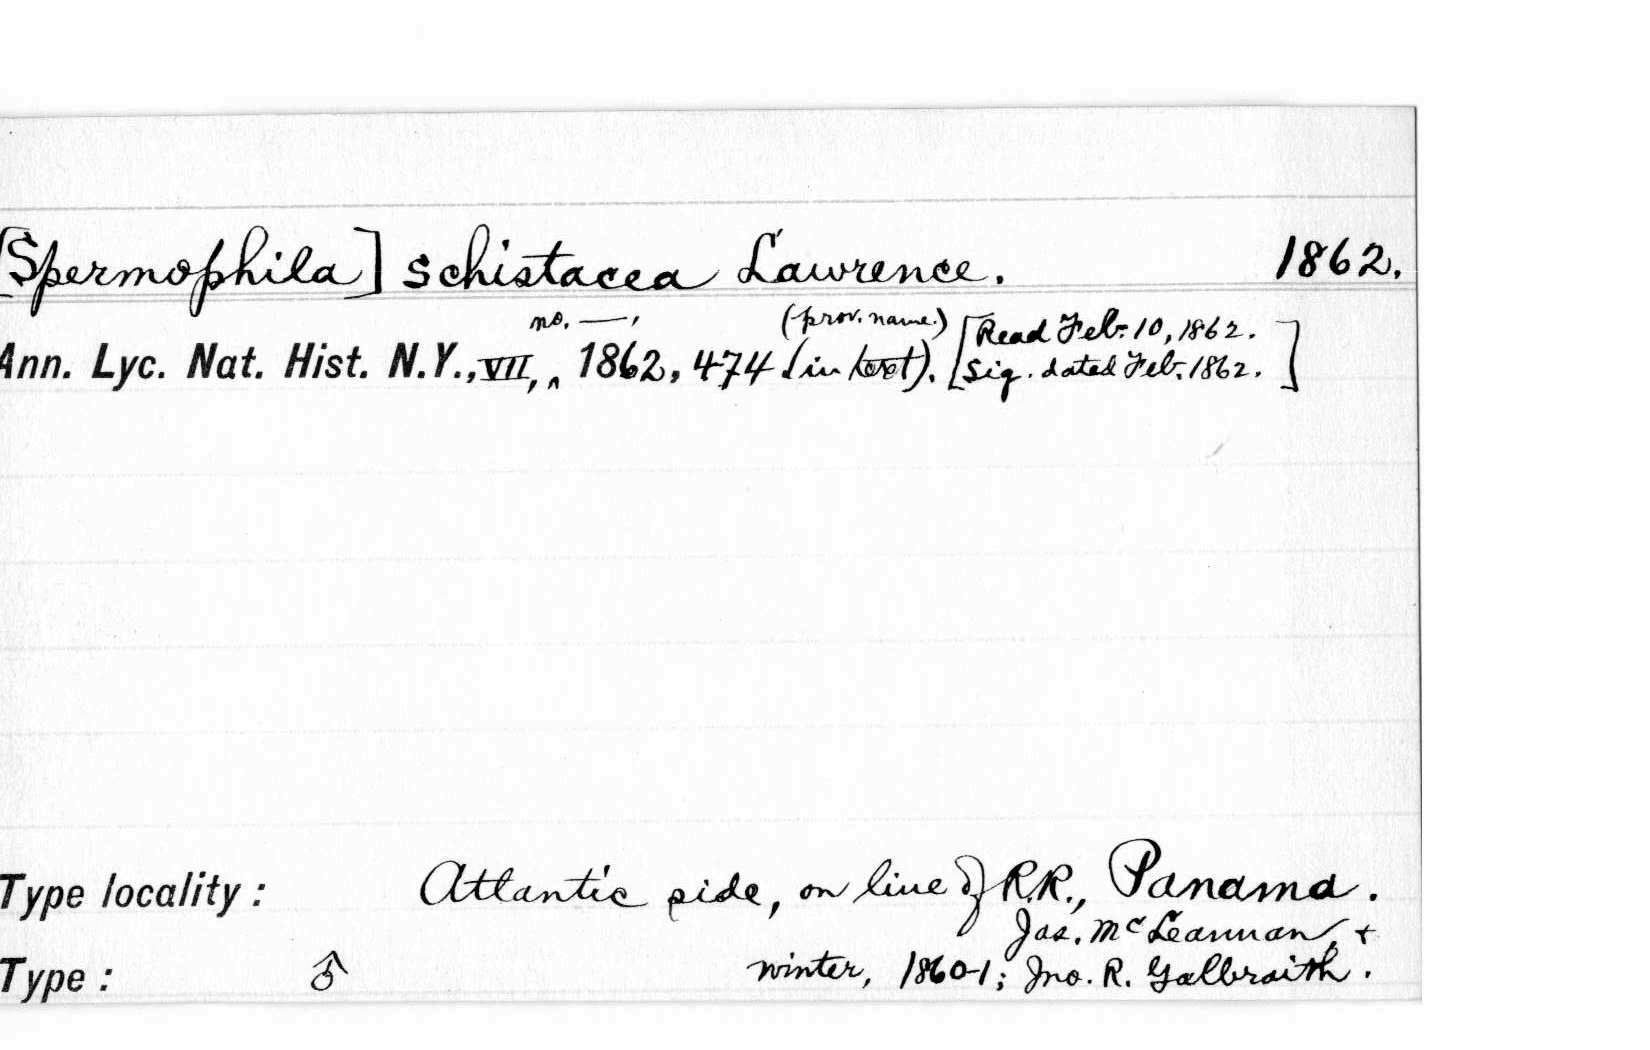 [Spermophila] schistacea Lawrence. 1862.
no. —, (prov. name.) [Read Feb. 10, 1862.
Ann. Lyc. Nat. Hist. N.Y., VII, ^ 1862, 474 (in text). Sig. dated Feb. 1862.]
Type locality: Atlantic side, on line of R.R., Panama.
Jas. McLeannan, +
Type: ♂ winter, 1860-1; Jno. R. Galbraith.